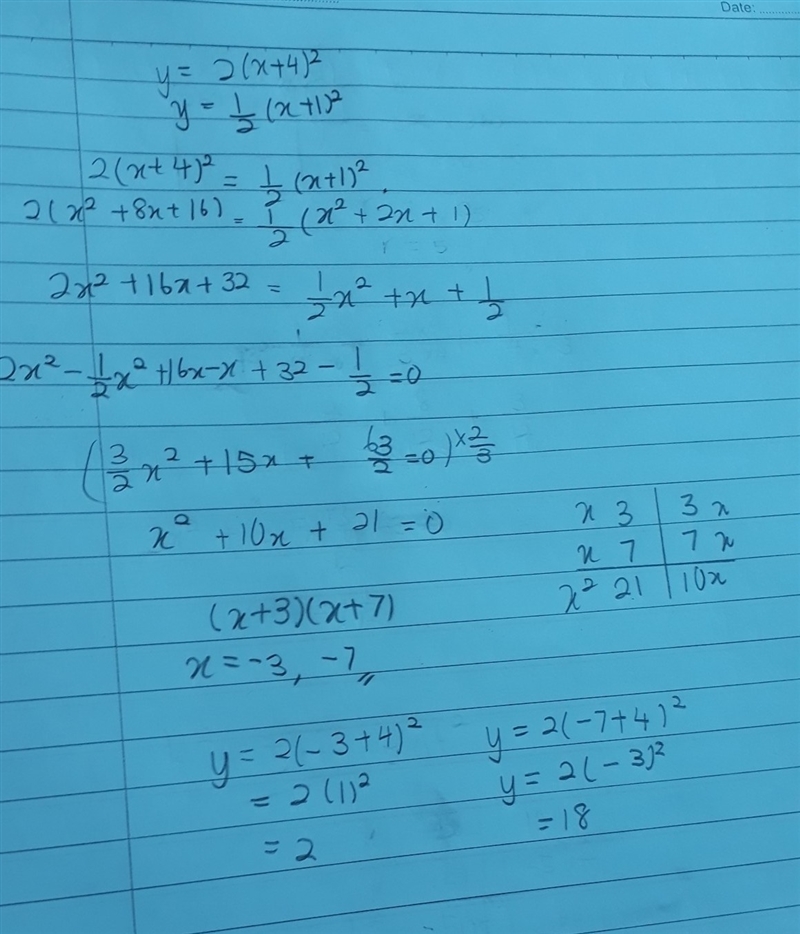 Date: ............
y = 2(x+4)²
y = 1/2 (x+1)²
2(x+4)² = 1/2 (x+1)².
2(x² + 8x + 16) = 1/2 (x² + 2x + 1)
2x² + 16x + 32 = 1/2 x² + x + 1/2
2x² - 1/2 x² + 16x - x + 32 - 1/2 = 0
(3/2 x² + 15x + 63/2 = 0) × 2/3
x² + 10x + 21 = 0
x 3 | 3x
x 7 | 7x
x² 21 | 10x
(x+3)(x+7)
x = -3, -7
y = 2(-3+4)²
= 2(1)²
= 2
y = 2(-7+4)²
y = 2(-3)²
= 18